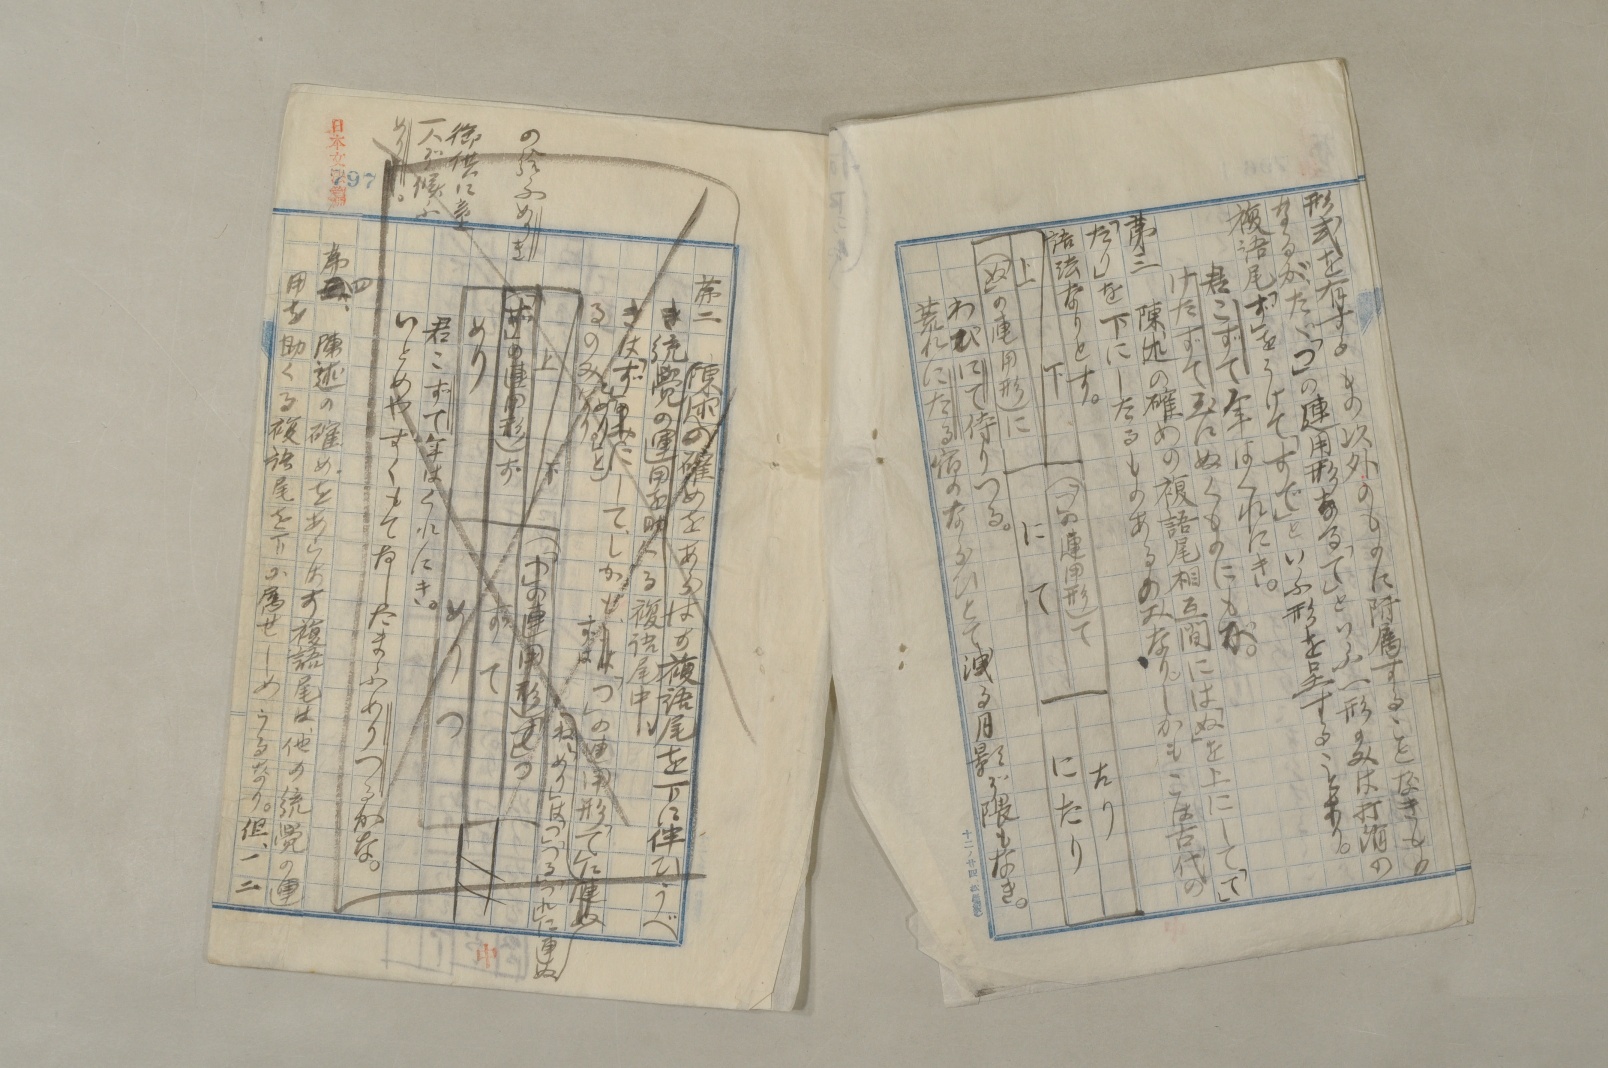 形式を有す。その以外のものに附属することなきもの
なるがたゞ「つ」の連用形なる「て」といふ一形のみは打消の
複語尾「ず」をうけて「ずて」といふ形を呈することあり。
君こずて年はくれにき。
けたずて玉にぬくものにもが。
第三 陳述の確めの複語尾相互間には「ぬ」を上にして「て」
「たり」を下にしたるものあるのみなり。しかもこは古代の
語法なりとす。
上 下
(つ)の連用形て たり
(ぬ)の連用形に にて にたり
わびにて侍りつる。
荒れにたる宿のならひとて洩る月影ぞ隈もなき。
十二ノ廿四
日本文
797
の給ふめりき
御供に
人ぞ候ふ
めり。
第二 陳述の確めをあらはす複語尾を下に伴ひうべ
き統覺の運用を助くる複語尾中
るのみ
して、しかも
「つ」の連用形「て」に連ぬ
ずは
めりは「つる」「つれ」に連ぬ
上 下
の連用形ず ずて
めり めりつ
君こずて年はくれにき。
いとめやすくもてなしたまふめりつるかな。
第四、陳述の確めをあらはす複語尾は、他の統覺の運
用を助くる複語尾を下に属せしめうるなり。但、一二
中